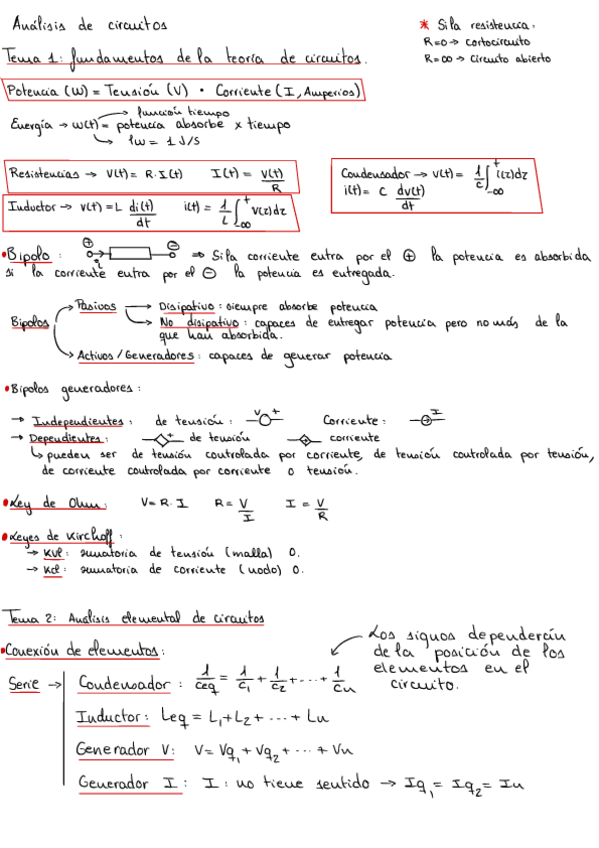 Análisis de circuitos
* Si la resistencia:
R=0 → cortocircuito
R=∞ → Circuito abierto
Tema 1: fundamentos de la teoría de circuitos.
Potencia (W) = Tensión (V) · Corriente (I, Amperios)
→ función tiempo
Energía → w(t) = potencia absorbe x tiempo
↳ 1w = 1 J/S
Resistencias → V(t) = R·I(t) I(t) = V(t)/R
Inductor → v(t) = L di(t)/dt i(t) = 1/L ∫_{-∞}^{t} V(z)dz
Condensador → v(t) = 1/C ∫_{-∞}^{t} i(z)dz
i(t) = C dv(t)/dt
• Bipolo: ⊕ i ⊖ ⇒ Si la corriente entra por el ⊕ la potencia es absorbida
si la corriente entra por el ⊖ la potencia es entregada.
Bipolos
→ Pasivos → Disipativo: siempre absorbe potencia
→ No disipativo: capaces de entregar potencia pero no más de la
que han absorbida.
→ Activos/Generadores: capaces de generar potencia
• Bipolos generadores:
→ Independientes: de tensión: V + Corriente: I
→ Dependientes: + de tensión corriente
↳ pueden ser de tensión controlada por corriente, de tensión controlada por tensión,
de corriente controlada por corriente o tensión.
• Ley de Ohm: V = R·I R = V/I I = V/R
• Leyes de Kirchoff:
→ KVL: sumatoria de tensión (malla) 0.
→ KCL: sumatoria de corriente (nodo) 0.
Tema 2: Análisis elemental de circuitos
• Conexión de elementos:
Los signos dependerán
de la posición de los
elementos en el
circuito.
Serie → Condensador: 1/Ceq = 1/C1 + 1/C2 + ... + 1/Cn
Inductor: Leq = L1 + L2 + ... + Ln
Generador V: V = Vg1 + Vg2 + ... + Vn
Generador I: I: no tiene sentido → Ig1 = Ig2 = In